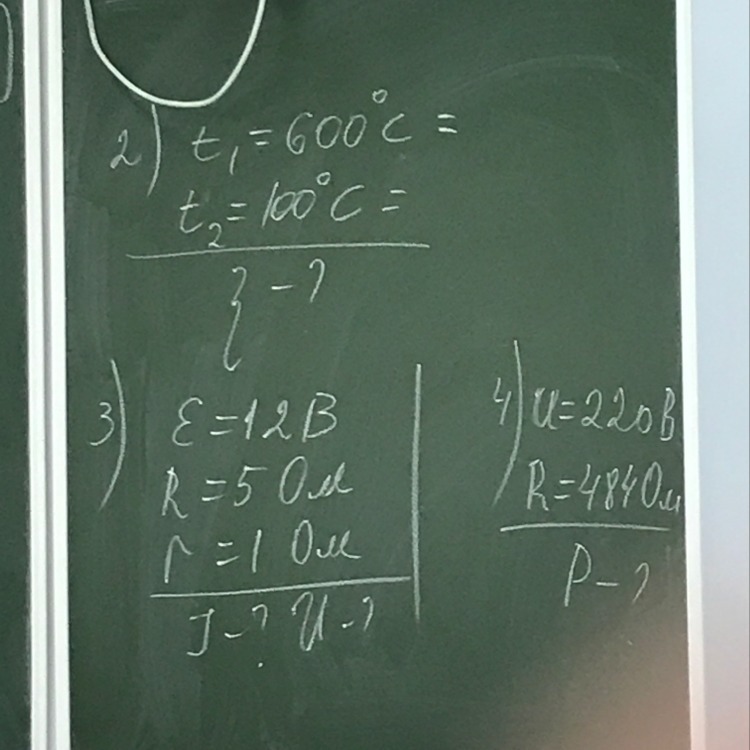 2) t₁=600°C =
t₂=100°C =
η - ?
3) ε=12В
R=5 Ом
r=1 Ом
J-? U-?
4) U=220В
R=484Ом
P-?